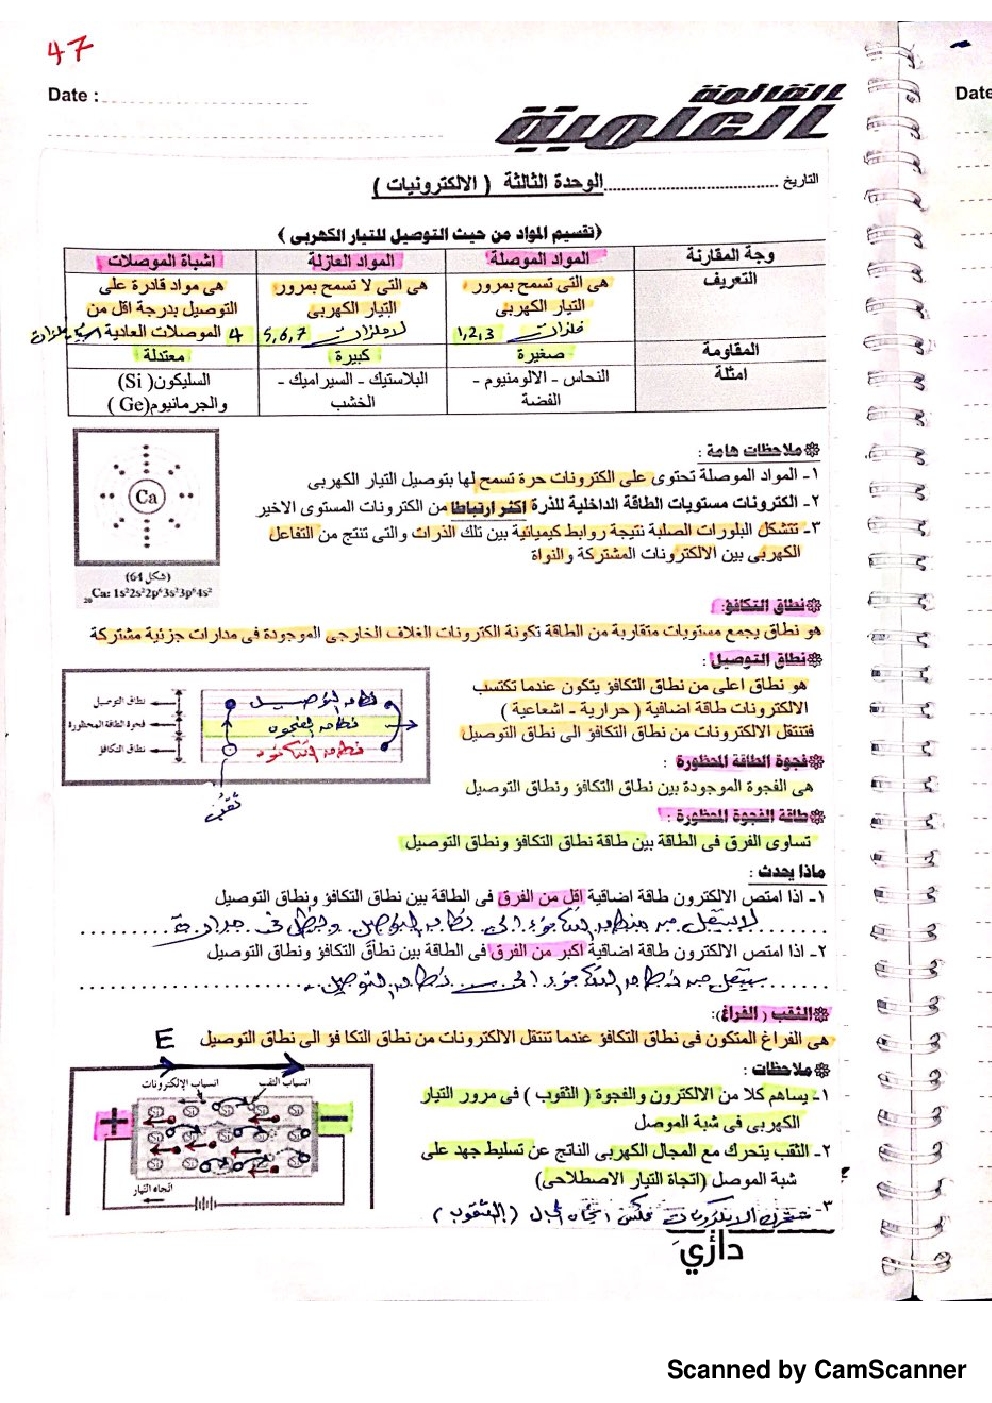 47
Date :
Date
القائمة
العلمية
التاريخ
الوحدة الثالثة ( الالكترونيات )
(تقسيم المواد من حيث التوصيل للتيار الكهربى )
وجة المقارنة
المواد الموصلة
المواد العازلة
اشباة الموصلات
التعريف
هى التى تسمح بمرور
التيار الكهربى
فلزات 1,2,3
هى التي لا تسمح بمرور
التيار الكهربى
لافلزات 5,6,7
هى مواد قادرة على
التوصيل بدرجة اقل من
الموصلات العادية 4
المقاومة
صغيرة
كبيرة
معتدلة
امثلة
النحاس - الالومنيوم -
الفضة
البلاستيك - السيراميك -
الخشب
السليكون( Si)
والجرمانيوم(Ge )
ملاحظات هامة :
١- المواد الموصلة تحتوى على الكترونات حرة تسمح لها بتوصيل التيار الكهربى
٢- الكترونات مستويات الطاقة الداخلية للذرة اكثر ارتباطا من الكترونات المستوى الاخير
٣- تتشكل البلورات الصلبة نتيجة روابط كيميائية بين تلك الذرات والتى تنتج من التفاعل
الكهربى بين الالكترونات المشتركة والنواة
Ca
(شكل 61)
₂₀Ca: 1s²2s²2p⁶3s²3p⁶4s²
نطاق التكافؤ:
هو نطاق يجمع مستويات متقاربة من الطاقة تكونة الكترونات الغلاف الخارجى الموجودة فى مدارات جزئية مشتركة
نطاق التوصيل :
هو نطاق اعلى من نطاق التكافؤ يتكون عندما تكتسب
الالكترونات طاقة اضافية ( حرارية - اشعاعية )
فتنتقل الالكترونات من نطاق التكافؤ الى نطاق التوصيل
نطاق التوصيل
فجوة الطاقة المحظورة
نطاق التكافؤ
نطاق التوصيل
نطاق الفجوة
نطاق التكافؤ
ثقب
فجوة الطاقة المحظورة :
هى الفجوة الموجودة بين نطاق التكافؤ ونطاق التوصيل
طاقة الفجوة المحظورة :
تساوى الفرق فى الطاقة بين طاقة نطاق التكافؤ ونطاق التوصيل
ماذا يحدث :
١- اذا امتص الالكترون طاقة اضافية اقل من الفرق فى الطاقة بين نطاق التكافؤ ونطاق التوصيل
لا ينتقل من نطاق التكافؤ الى نطاق التوصيل ويظل فى مداره
٢- اذا امتص الالكترون طاقة اضافية اكبر من الفرق فى الطاقة بين نطاق التكافؤ ونطاق التوصيل
ينتقل من نطاق التكافؤ الى نطاق التوصيل
الثقب ( الفراغ):
هى الفراغ المتكون فى نطاق التكافؤ عندما تنتقل الالكترونات من نطاق التكا فؤ الى نطاق التوصيل
ملاحظات :
١- يساهم كلا من الالكترون والفجوة ( الثقوب ) فى مرور التيار
الكهربى فى شبة الموصل
٢- الثقب يتحرك مع المجال الكهربى الناتج عن تسليط جهد على
شبة الموصل (اتجاة التيار الاصطلاحى)
٣- تتحرك الالكترونات عكس اتجاه المجال (الثقوب )
E
انسياب الثقب
انسياب الإلكترونات
+
−
Si Si Si Si
اتجاه التيار
دائري
Scanned by CamScanner